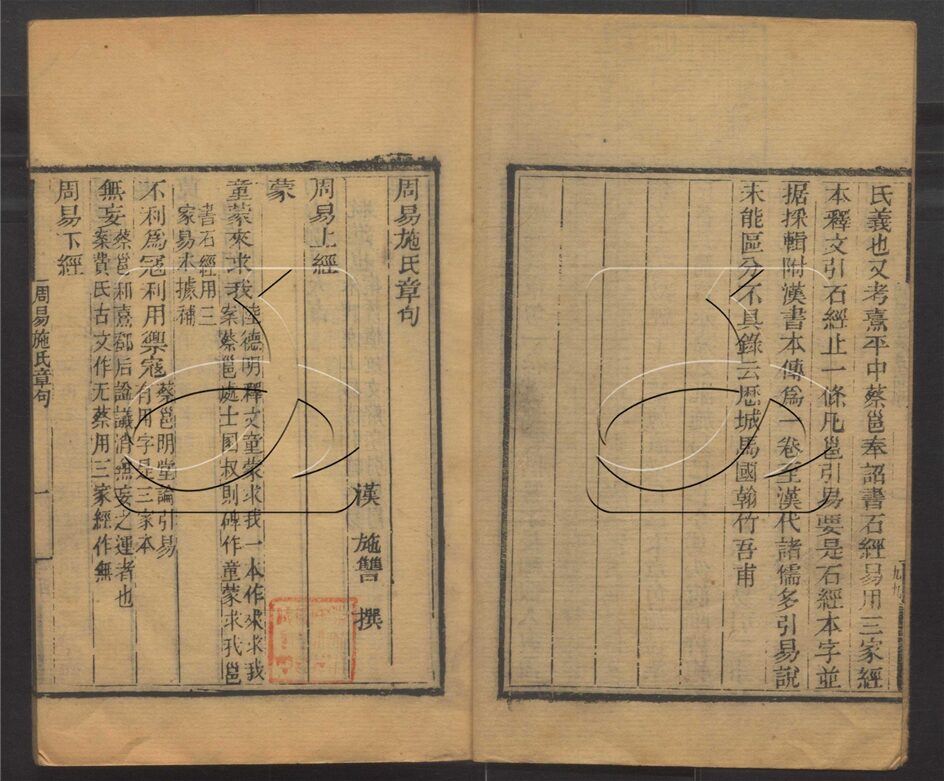 氏義也又考熹平中蔡邕奉詔書石經易用三家經
本釋文引石經止一條凡邕引易要是石經本字並
据採輯附漢書本傳爲一卷至漢代諸儒多引易說
未能區分不具錄云厯城馬國翰竹吾甫
周易施氏章句
漢 施讐 撰
周易上經
蒙
童蒙來求我陸德明釋文童蒙求我一本作來求我
案蔡邕處士圂叔則碑作童蒙來求我邕
書石經用三
家易來據補
不利爲寇利用禦寇蔡邕明堂論引易
有用字是三家本
無妄蔡邕和熹鄧后諡議消無妄之運者也
案費氏古文作无蔡用三家經作無
周易下經
周易施氏章句
一